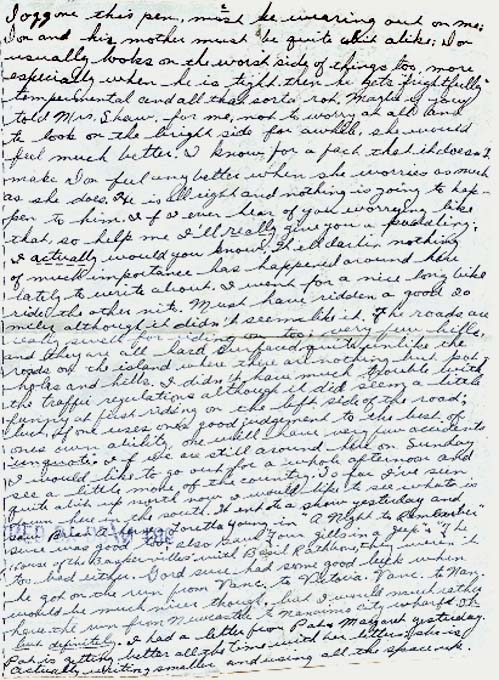 Doggone this pen, must be wearing out on me;
Don and his mother must be quite alike; Don
usually looks on the worst side of things too, more
especially when he is tight, then he gets frightfully
temperamental and all that sorta rot. Maybe if you
told Mrs. Shaw, for me, not to worry at all and
to look on the bright side for awhile she would
feel much better. I know for a fact that it doesn't
make Don feel any better when she worries as much
as she does. He is all right and nothing is going to hap-
pen to him. If I ever hear of you worrying like
that, so help me I'll really give you a paddling;
I actually would you know. Well darlin nothing
of much importance has happened around here
lately to write about. I went for a nice long bike
ride the other nite. Must have ridden a good 20
miles although it didn't seem like it. The roads are
really swell for riding on too; very few hills,
and they are all hard surfaced quite unlike the
roads on the island where there are nothing but pot-
holes and hills. I didn't have much trouble with
the traffic regulations although it did seem a little
funny at first riding on the left side of the road;
but if one uses ones good judgement to the best of
ones own ability one will have very few accidents
unquote. If we are still around here on Sunday
I would like to go out for a whole afternoon and
see a little more of the country. So far I've seen
quite a bit up north now I would like to see what is
here in the south. Went to a show yesterday and
saw Brian Aherne, Loretta Young in "A Night to Remember"
sure was good. We also saw "Four gills in a jeep" & "The
House of the Baskervilles" with Basil Rathbone, they weren't
too bad either. Gord sure had some good luck when
he got on the run from Vanc. to Victoria. Vanc. to Nan.
would be much nicer though, but I would much rather
have the run from Newcastle to Nanaimo city wharf. Oh
but definitely. I had a letter from Pat & Margaret yesterday.
Pat is getting better all the time with her letters; she is
actually writing smaller and using all the space up.